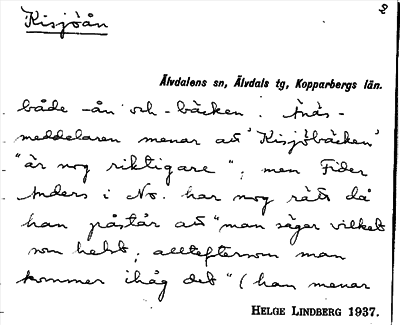 Kisjöån
2
Älvdalens sn, Älvdals tg, Kopparbergs län.
både -ån och -bäcken. Ånäs-
meddelaren menar att 'Kisjöbäcken'
"är nog riktigare"; men Fider
Anders i No. har nog rätt då
han påstår att "man säger vilket
som helst, allteftersom man
kommer ihåg det" (han menar
HELGE LINDBERG 1937.